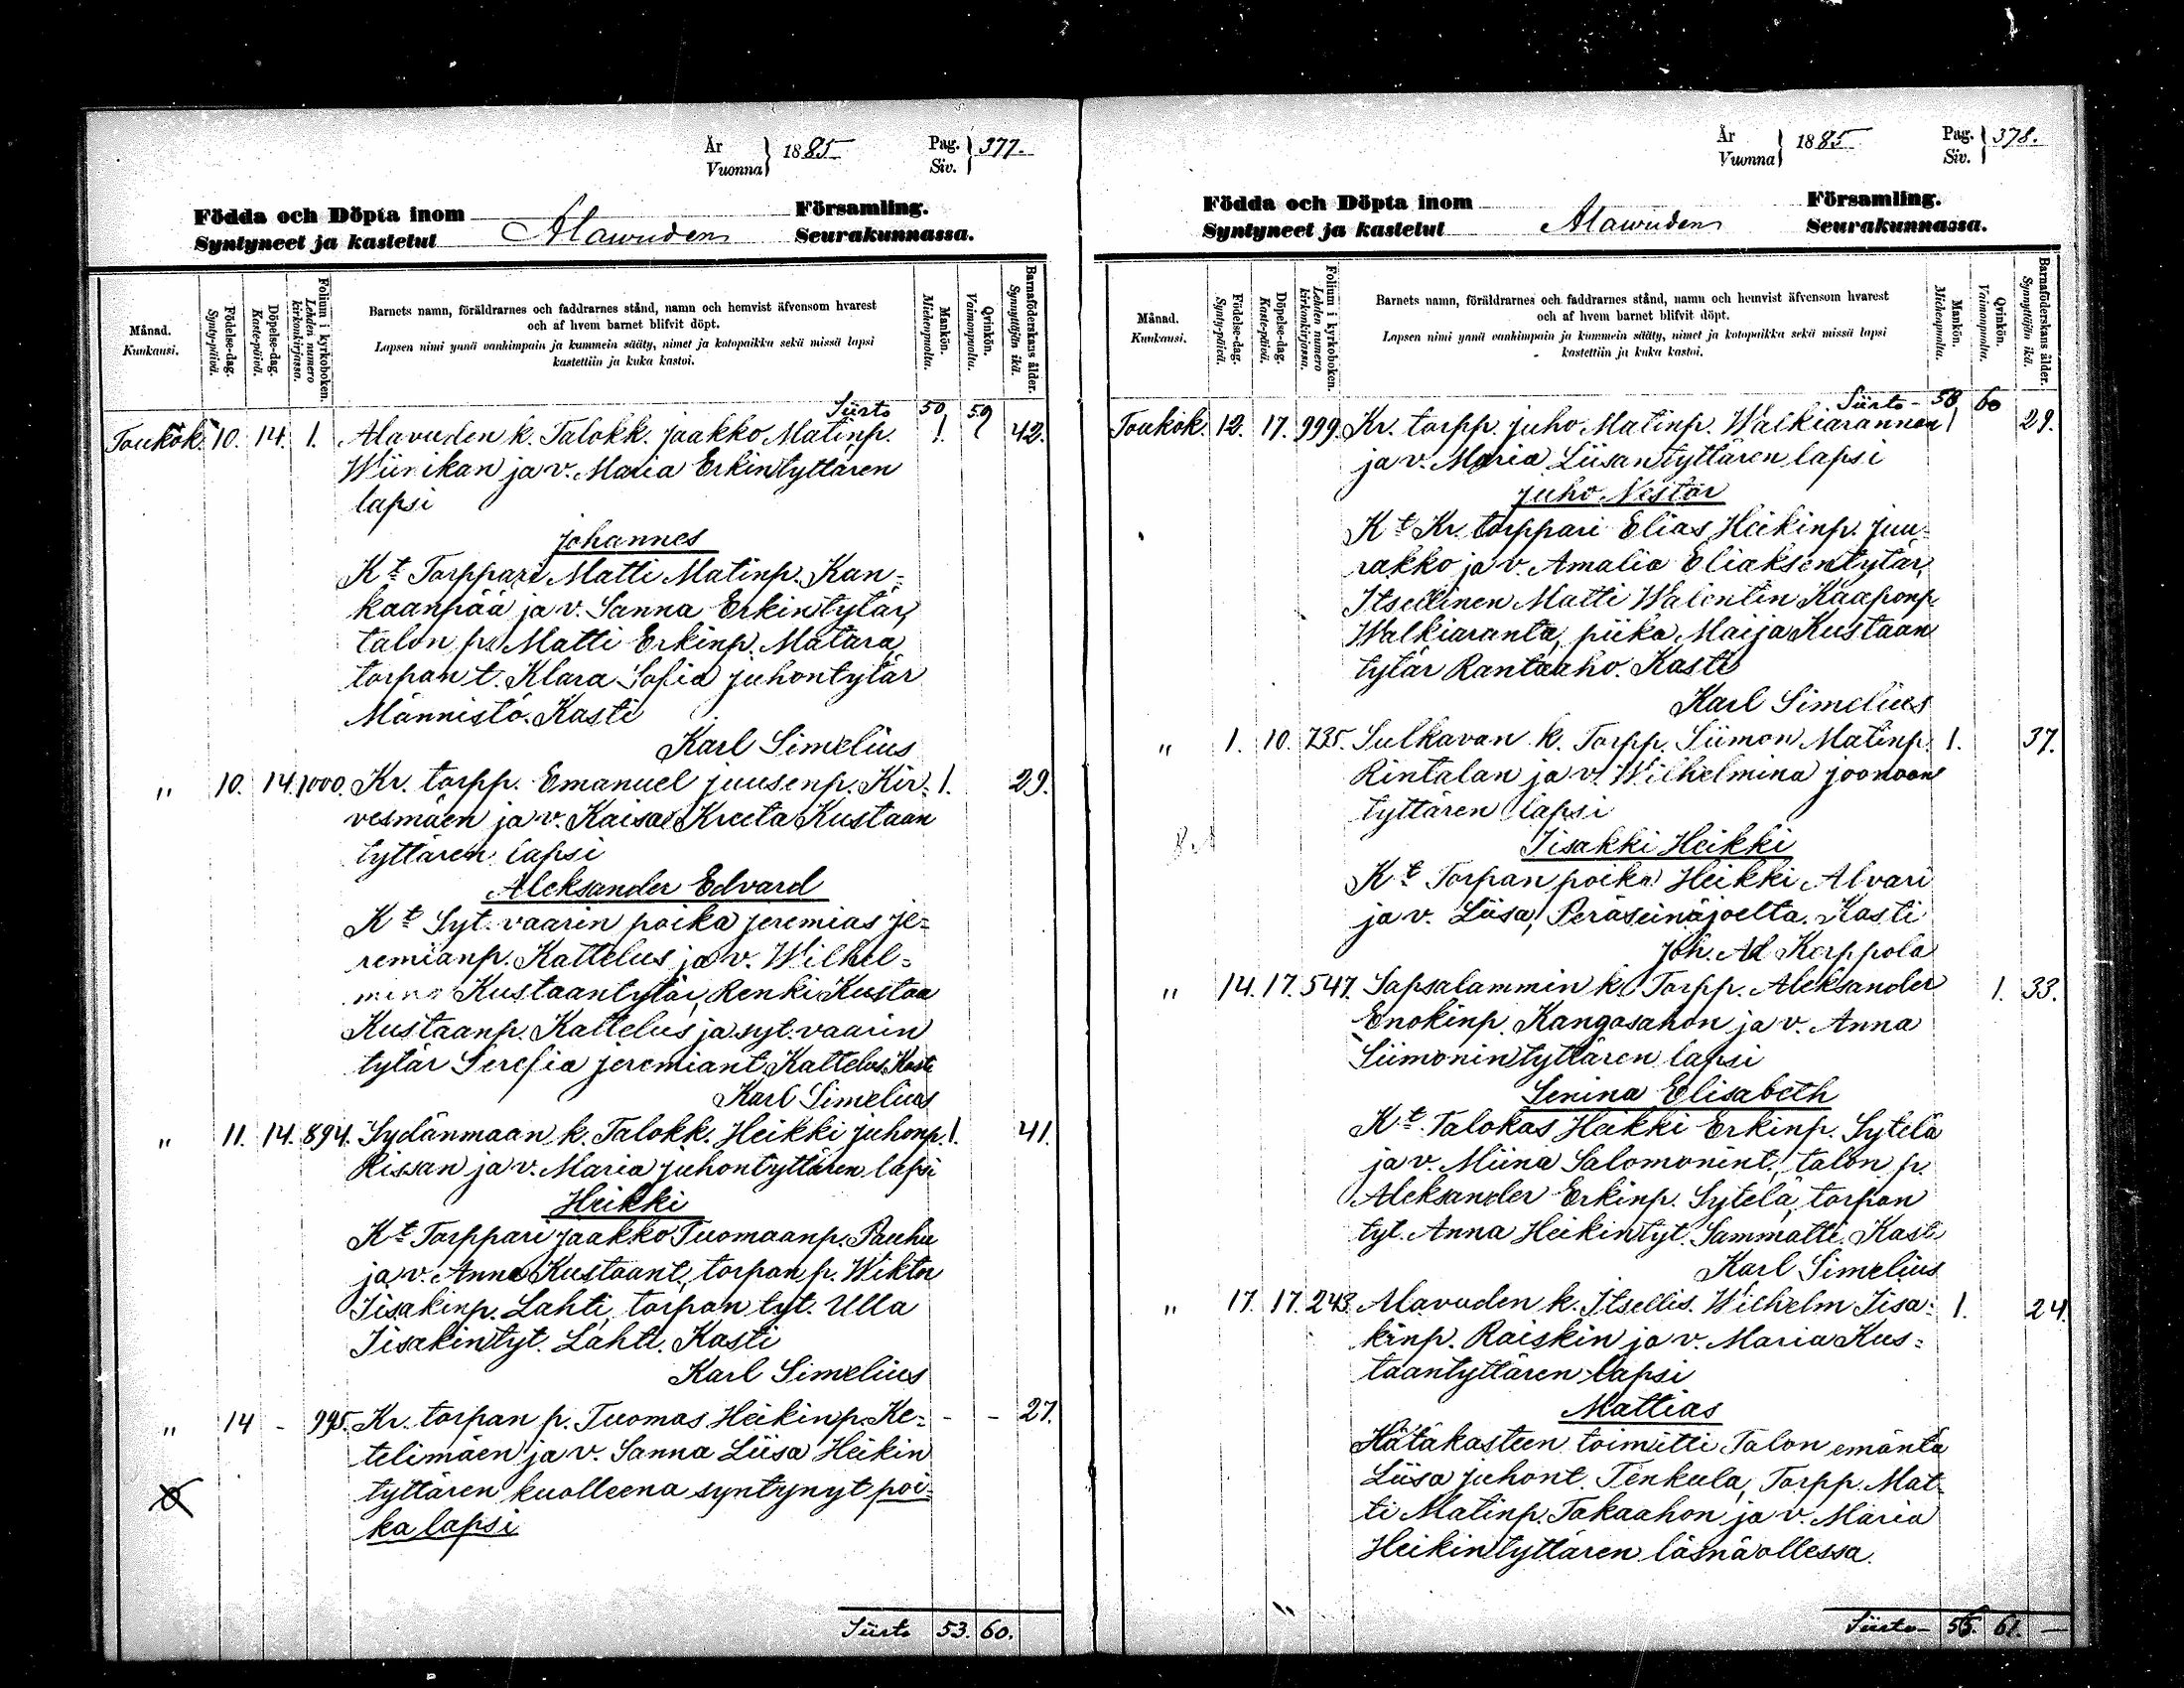 År
Vuonna } 1885
Pag.
Siv. } 377.
Födda och Döpta inom Församling.
Syntyneet ja kastetut Alawuden Seurakunnassa.
Månad.
Kuukausi.
Födelse-dag.
Synty-päivä.
Döpelse-dag.
Kaste-päivä.
Folium i kyrkoboken.
Lehden numero kirkonkirjassa.
Barnets namn, föräldrarnes och faddrarnes stånd, namn och hemvist äfvensom hvarest
och af hvem barnet blifvit döpt.
Lapsen nimi ynnä vanhimpain ja kummein sääty, nimet ja kotopaikka sekä missä lapsi
kastettiin ja kuka kastoi.
Mankön.
Miehenpuolta.
Qvinkön.
Vaimonpuolta.
Barnaföderskans ålder.
Synnyttäjän ikä.
Siirto 50 59
Toukok. 10. 14. 1. Alavuden k. Talokk. Jaakko Matinp. 1. 42.
Wiinikan ja v. Maria Erkintyttären
lapsi
Johannes
Kt Torppari Matti Matinp. Kan=
kaanpää ja v. Sanna Erkintytär,
talon p. Matti Erkinp. Matara,
torpan t. Klara Sofia Juhontytär
Männistö. Kasti
Karl Simelius
" 10. 14. 1000. Kr. torpp. Emanuel Juusenp. Kir= 1. 29.
vesmäen ja v. Kaisa Kreeta Kustaan
tyttären lapsi
Aleksander Edvard
Kt Syt. vaarin poika Jeremias Je=
remianp. Kattelus ja v. Wilhel=
mina Kustaantytär, Renki Kustaa
Kustaanp. Kattelus ja syt. vaarin
tytär Serefia Jeremiant. Kattelus. Kasti
Karl Simelius
" 11. 14. 894. Sydänmaan k. Talokk. Heikki Juhonp. 1. 41.
Rissan ja v. Maria Juhontyttären lapsi
Heikki
Kt Torppari Jaakko Tuomaanp. Pauhu
ja v. Anna Kustaant., torpan p. Wiktor
Iisakinp. Lahti, torpan tyt. Ulla
Iisakintyt. Lahti. Kasti
Karl Simelius
" 14 - 995. Kr. torpan p. Tuomas Heikinp. Ke= - - 27.
telimäen ja v. Sanna Liisa Heikin
tyttären kuolleena syntynyt poi=
ka lapsi
Siirto 53. 60.
År
Vuonna } 1885
Pag.
Siv. } 378.
Födda och Döpta inom Församling.
Syntyneet ja kastetut Alawuden Seurakunnassa.
Månad.
Kuukausi.
Födelse-dag.
Synty-päivä.
Döpelse-dag.
Kaste-päivä.
Folium i kyrkoboken.
Lehden numero kirkonkirjassa.
Barnets namn, föräldrarnes och faddrarnes stånd, namn och hemvist äfvensom hvarest
och af hvem barnet blifvit döpt.
Lapsen nimi ynnä vanhimpain ja kummein sääty, nimet ja kotopaikka sekä missä lapsi
kastettiin ja kuka kastoi.
Mankön.
Miehenpuolta.
Qvinkön.
Vaimonpuolta.
Barnaföderskans ålder.
Synnyttäjän ikä.
Siirto - 60
Toukok. 12. 17. 999. Kr. torpp. Juho Matinp. Walkiarannan 1 29.
ja v. Maria Liisantyttären lapsi
Juho Nestor
Kt Kr. torppari Elias Heikinp. Juu=
rakko ja v. Amalia Eliaksentytär,
Itsellinen Matti Walentin Kaaponp.
Walkiaranta, piika Maija Kustaan
tytär Rantaaho. Kasti
Karl Simelius
" 1. 10. 735. Sulkavan k. Torpp. Siimon Matinp. 1. 37.
Rintalan ja v. Wilhelmina Joonaan
tyttären lapsi
Iisakki Heikki
Kt Torpan poika Heikki Alvari
ja v. Liisa, Peräseinäjoelta. Kasti
Joh. Ad. Kerppola
" 14. 17. 547. Sapsalammin k. Torpp. Aleksander 1. 33.
Enokinp. Kangasahon ja v. Anna
Siimonintyttären lapsi
Senina Elisabeth
Kt Talokas Heikki Erkinp. Sytelä
ja v. Miina Salomonint., talon p.
Aleksander Erkinp. Sytelä, torpan
tyt. Anna Heikintyt. Sammatti. Kasti
Karl Simelius
" 17. 17. 243. Alavuden k. Itsellis. Wilhelm Iisa= 1. 24.
kinp. Raiskin ja v. Maria Kus=
taantyttären lapsi
Mattias
Hätäkasteen toimitti Talon emäntä
Liisa Juhont. Tenkula, Torpp. Mat=
ti Matinp. Takaahon ja v. Maria
Heikintyttären läsnäollessa.
Siirto - 61. -